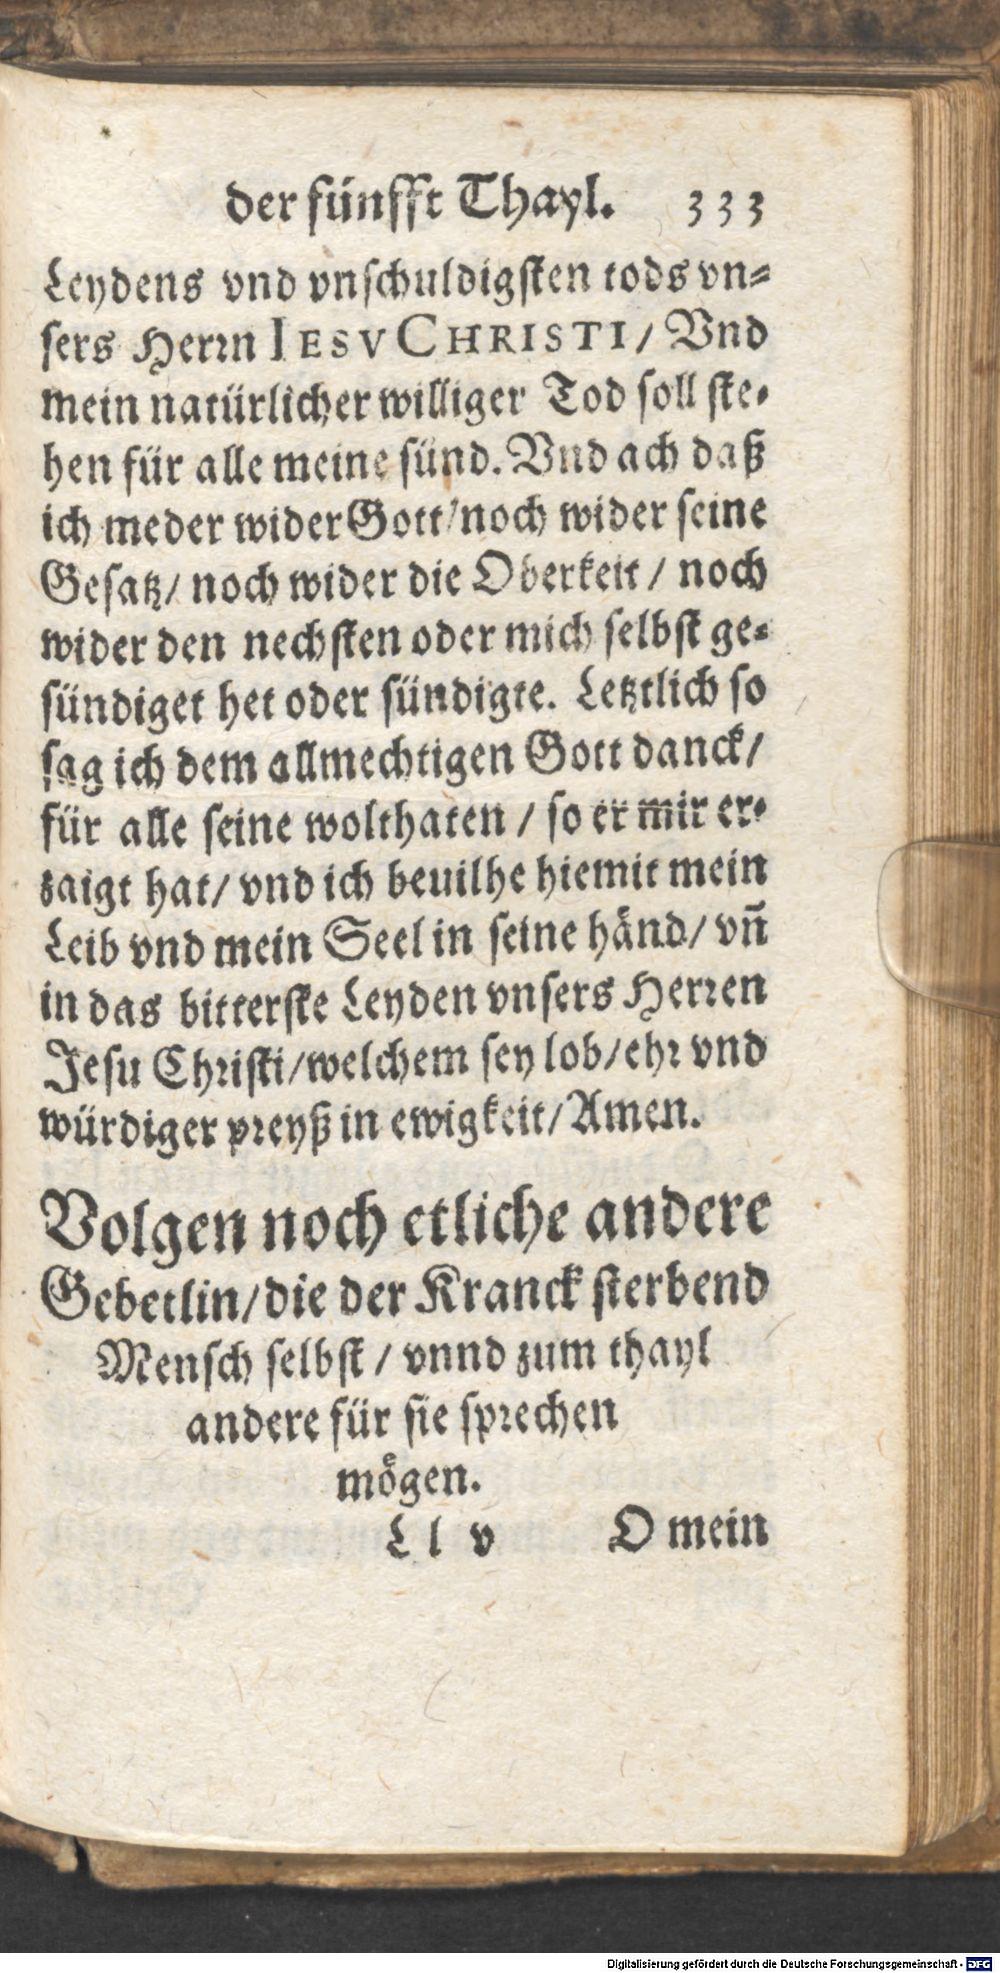 der fünfft Thayl. 333
Leydens vnd vnschuldigsten tods vn-
sers Herrn IESV CHRISTI / Vnd
mein natürlicher williger Tod soll ste-
hen für alle meine sünd. Vnd ach daß
ich meder wider Gott / noch wider seine
Gesatz / noch wider die Oberkeit / noch
wider den nechsten oder mich selbst ge-
sündiget het oder sündigte. Letztlich so
sag ich dem allmechtigen Gott danck /
für alle seine wolthaten / so er mir er-
zaigt hat / vnd ich beuilhe hiemit mein
Leib vnd mein Seel in seine händ / vñ
in das bitterste Leyden vnsers Herren
Jesu Christi / welchem sey lob / ehr vnd
würdiger preyß in ewigkeit / Amen.
Volgen noch etliche andere
Gebetlin / die der Kranck sterbend
Mensch selbst / vnnd zum thayl
andere für sie sprechen
mögen.
L l v O mein
Digitalisierung gefördert durch die Deutsche Forschungsgemeinschaft - DFG